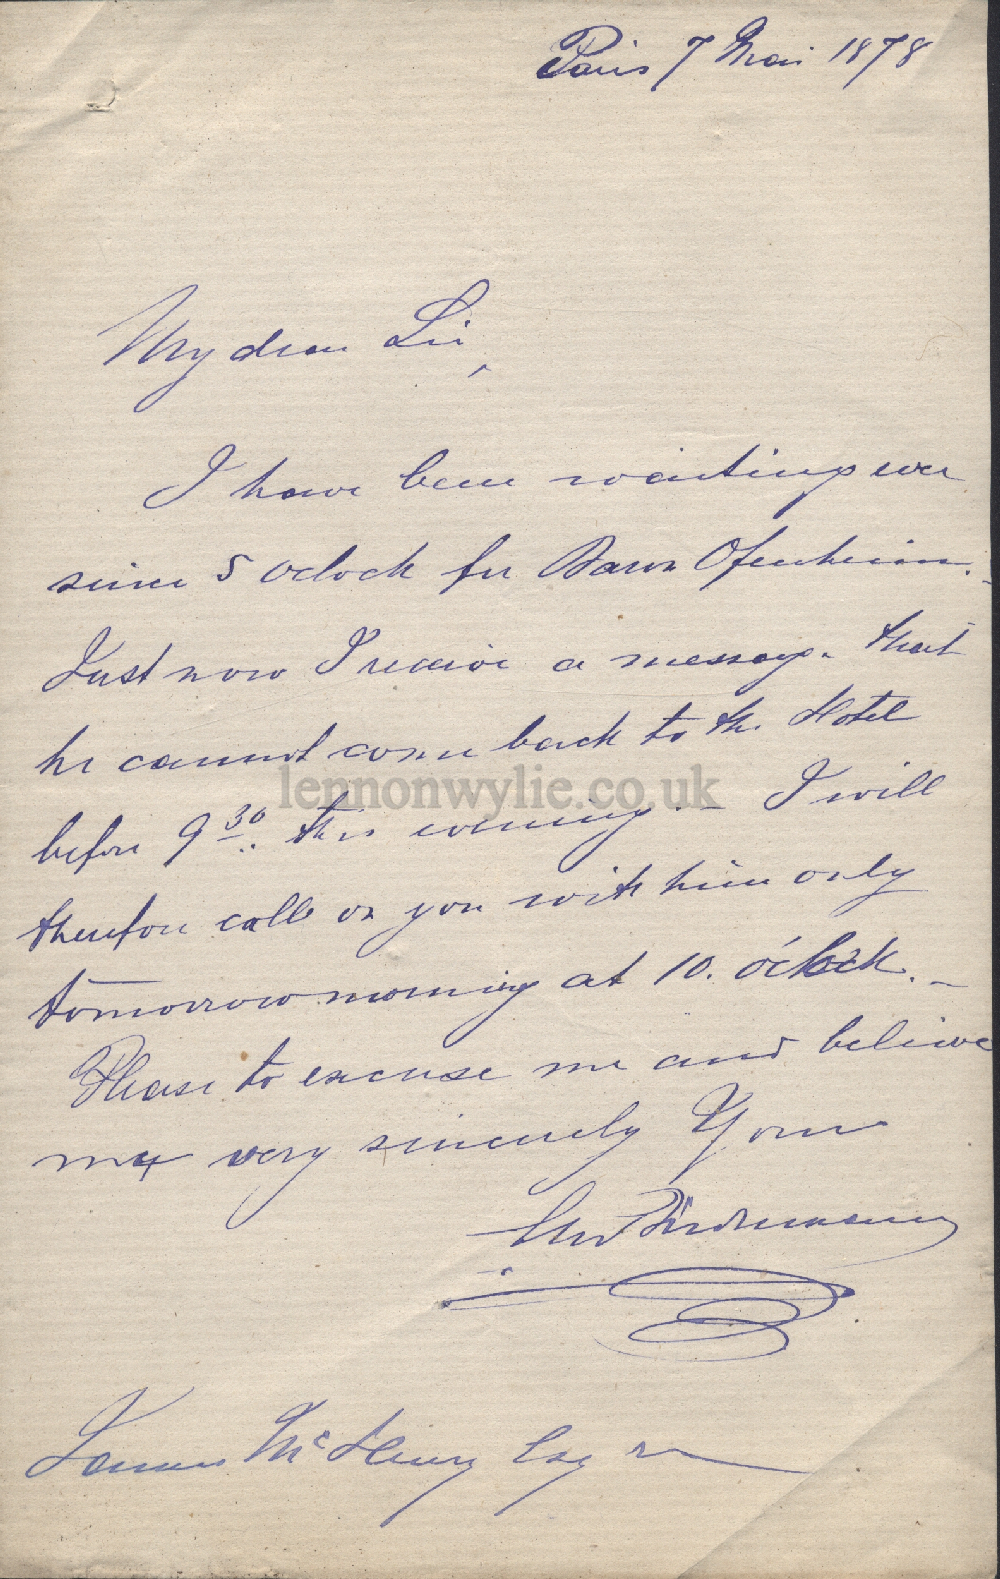 Paris 7 Mai 1878
My dear Sir,
I have been waiting ever
since 5 oclock for Baron Ofenheim.
Just now I receive a message that
he cannot come back to the Hotel
before 9 30 this evening. – I will
lennonwylie.co.uk
therefore call on you with him only
tomorrow morning at 10. o'clock. –
Please to excuse me and believe
me very sincerely Yours
James McHenry Esq